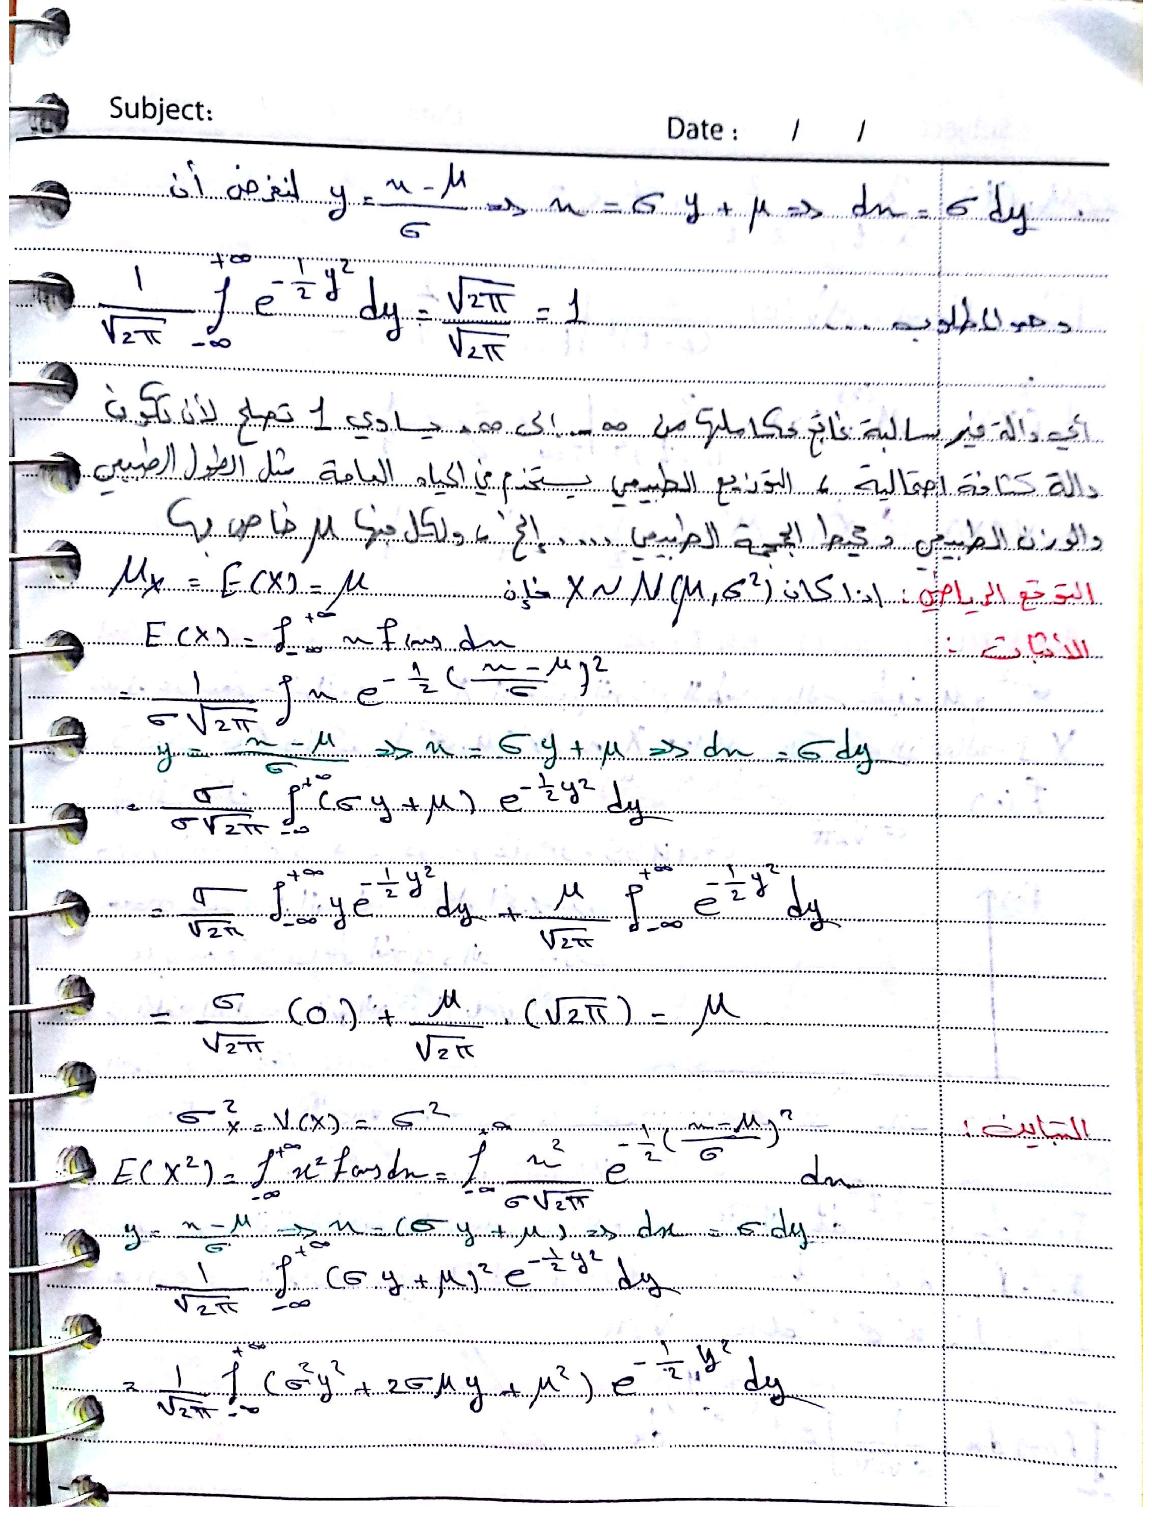 Subject:
Date : / /
لنفرض أن y = (x-μ)/σ ⇒ x = σy + μ ⇒ dx = σ dy
1/√2π ∫_{-∞}^{+∞} e^{-1/2 y²} dy = √2π/√2π = 1 وهو المطلوب ...
أي دالة غير سالبة ناتج تكاملها من ∞- إلى ∞+ يساوي 1 تصلح لأن تكون
دالة كثافة احتمالية ، التوزيع الطبيعي يستخدم في الحياه العامة مثل الطول الطبيعي
والوزن الطبيعي ومحيط الجمجمة الطبيعي .... إلخ ، ولكل منها μ خاص بها
التوقع الرياضي : اذا كان X ~ N(μ,σ²) فإن μ_x = E(X) = μ
الأثبات :
E(X) = ∫_{-∞}^{+∞} x f(x) dx
= 1/(σ√2π) ∫ x e^{-1/2 ((x-μ)/σ)²}
y = (x-μ)/σ ⇒ x = σy + μ ⇒ dx = σ dy
= σ/(σ√2π) ∫_{-∞}^{+∞} (σy + μ) e^{-1/2 y²} dy
= σ/√2π ∫_{-∞}^{+∞} y e^{-1/2 y²} dy + μ/√2π ∫_{-∞}^{+∞} e^{-1/2 y²} dy
= σ/√2π (0) + μ/√2π . (√2π) = μ
التباين : σ²_x = V(X) = σ²
E(X²) = ∫_{-∞}^{+∞} x² f(x) dx = ∫_{-∞}^{∞} x²/(σ√2π) e^{-1/2 ((x-μ)/σ)²} dx
y = (x-μ)/σ ⇒ x = (σy + μ) ⇒ dx = σ dy
1/√2π ∫_{-∞}^{+∞} (σy + μ)² e^{-1/2 y²} dy
= 1/√2π ∫_{-∞}^{+∞} (σ²y² + 2σμy + μ²) e^{-1/2 y²} dy